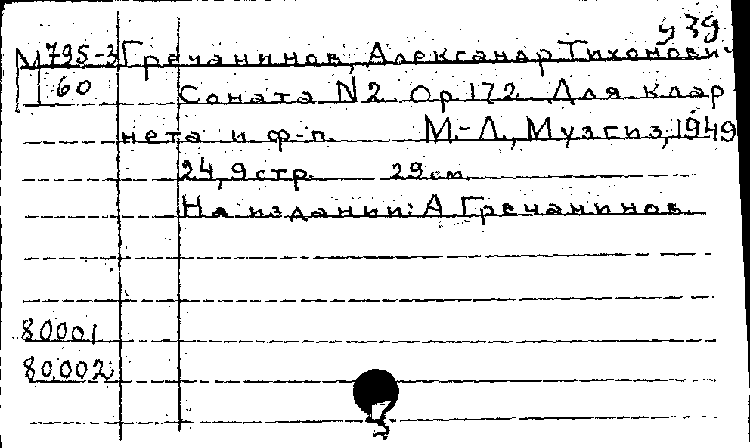 у 39
М 795-3 Гречанинов, Александр Тихонович
60 Соната N2 Op172 Для клар
нета и ф-п. М.-Л., Музгиз, 1949
24, 9 стр. 29 см.
На издании: А Гречанинов.
80001
80002